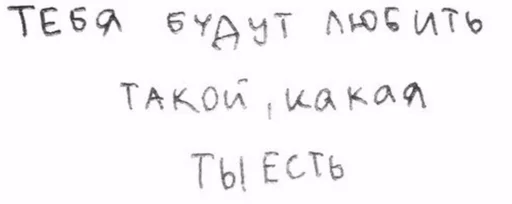 ТЕБЯ БУДУТ ЛЮБИТЬ
ТАКОЙ, КАКАЯ
ТЫ ЕСТЬ